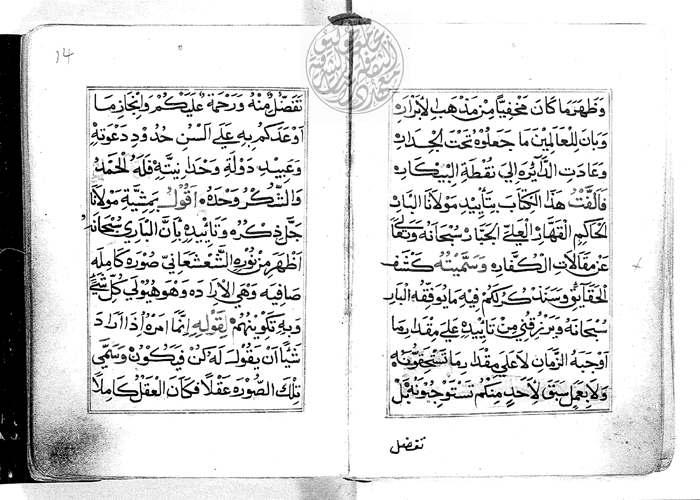 وظهر ما كان مخفيا من مذهب الابرار
وبان للعالمين ما جعلوه تحت الجدار
وعادت الدائره الي نقطة البيكار
فالفت هذا الكتاب بتأييد مولانا البار
الحاكم القهار العلي الجبار سبحانه وتعالى
عن مقالات الكفار وسميته كشف
الحقايق وسنذكر لكم فيه ما يوفقه البار
سبحانه ويرزقني من تائيده علي مقدار ما
اوجبه الزمان لا علي مقدار ما تستحقونه
ولا بعمل سبق لاحد منكم تستوجبونه بل
تفضل
14
تفضل منه ورحمة عليكم وانجاز ما
اوعدكم به على السن حدود دعوته
وعبيد دولة وحدانيته فله الحمد
والشكر وحده اقول بمشية مولانا
جل ذكره وتائيده بان الباري سبحانه
اظهر من نوره الشعشعاني صوره كامله
صافيه وهي الاراده وهو هيولي كل شئ
وبه تكوينهم لقوله انما امره اذا اراد
شيا ان يقول له كن فيكون وسمي
تلك الصوره عقلا فكان العقل كاملا